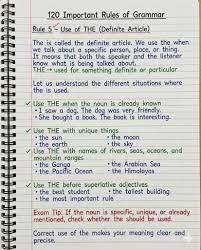 120 Important Rules of Grammar
Rule 5 – Use of THE (Definite Article)
The is called the definite article. We use the when
we talk about a specific person, place, or thing.
It means that both the speaker and the listener
know what is being talked about.
THE → used for something definite or particular
Let us understand the different situations where
the is used.
✓ Use THE when the noun is already known
• I saw a dog. The dog was very friendly.
• She bought a book. The book is interesting.
✓ Use THE with unique things
• the sun • the moon
• the earth • the sky
✓ Use THE with names of rivers, seas, oceans, and
mountain ranges
• the Ganga • the Arabian Sea
• the Pacific Ocean • the Himalayas
✓ Use THE before superlative adjectives
• the best student • the tallest building
• the most important rule
Exam Tip: If the noun is specific, unique, or already
mentioned, check whether the should be used.
Correct use of the makes your meaning clear and
precise.